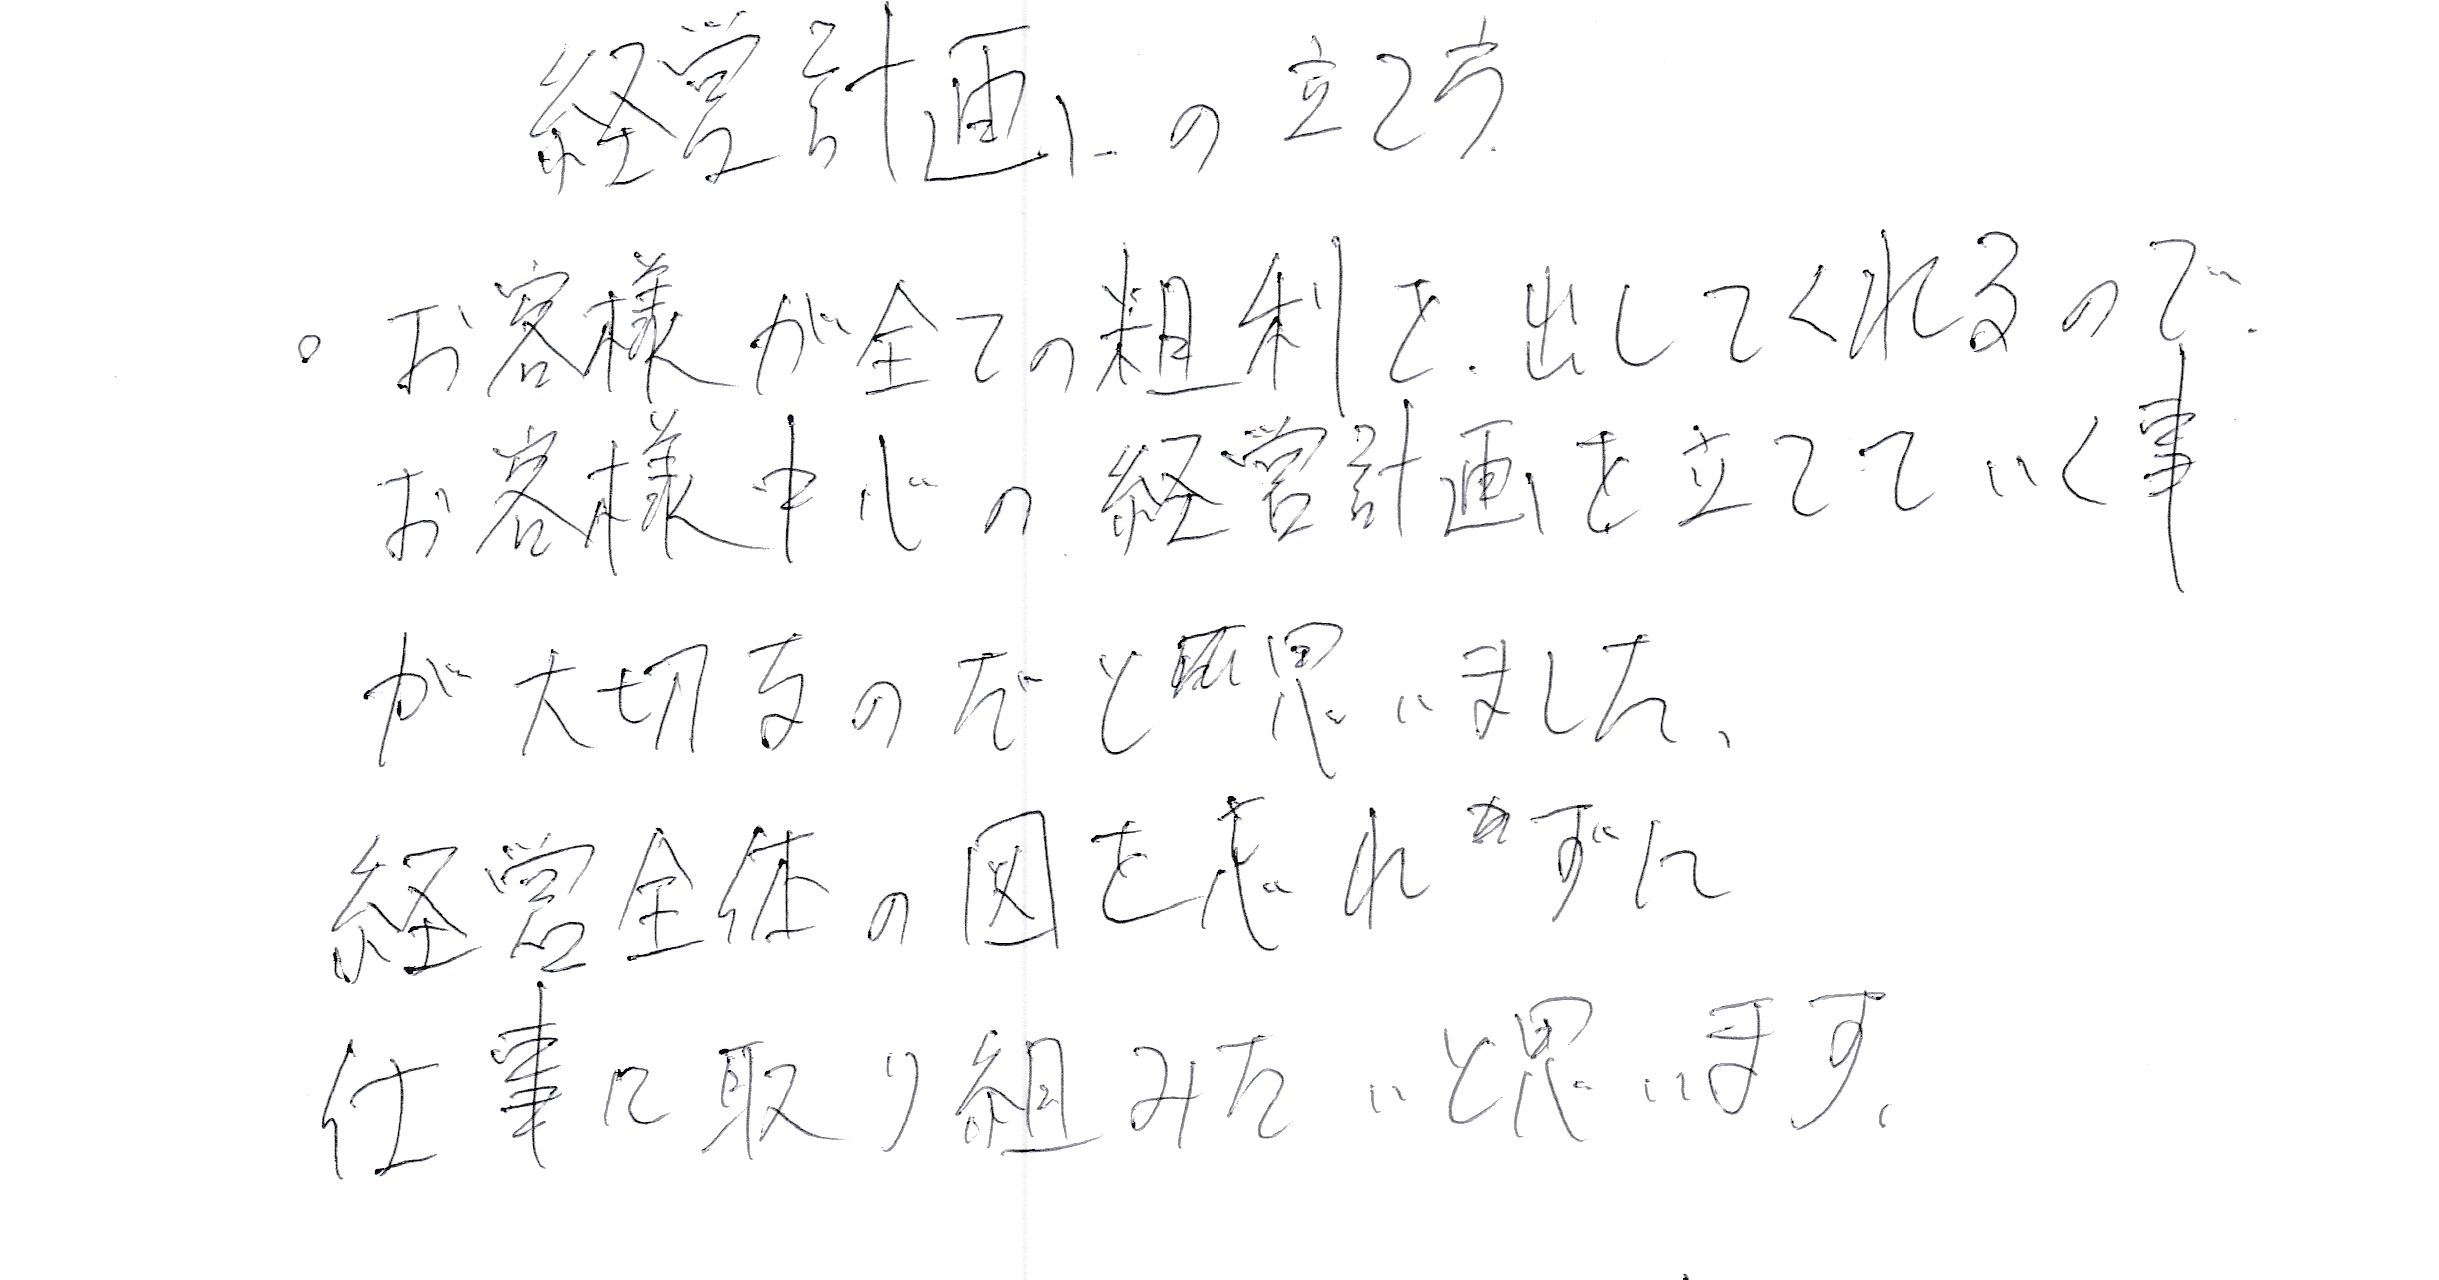 経営計画の立て方
。お客様が全ての粗利を、出してくれるので、
お客様中心の経営計画を立てていく事
が大切なのだと思いました、
経営全体の図を忘れずに
仕事に取り組みたいと思います、